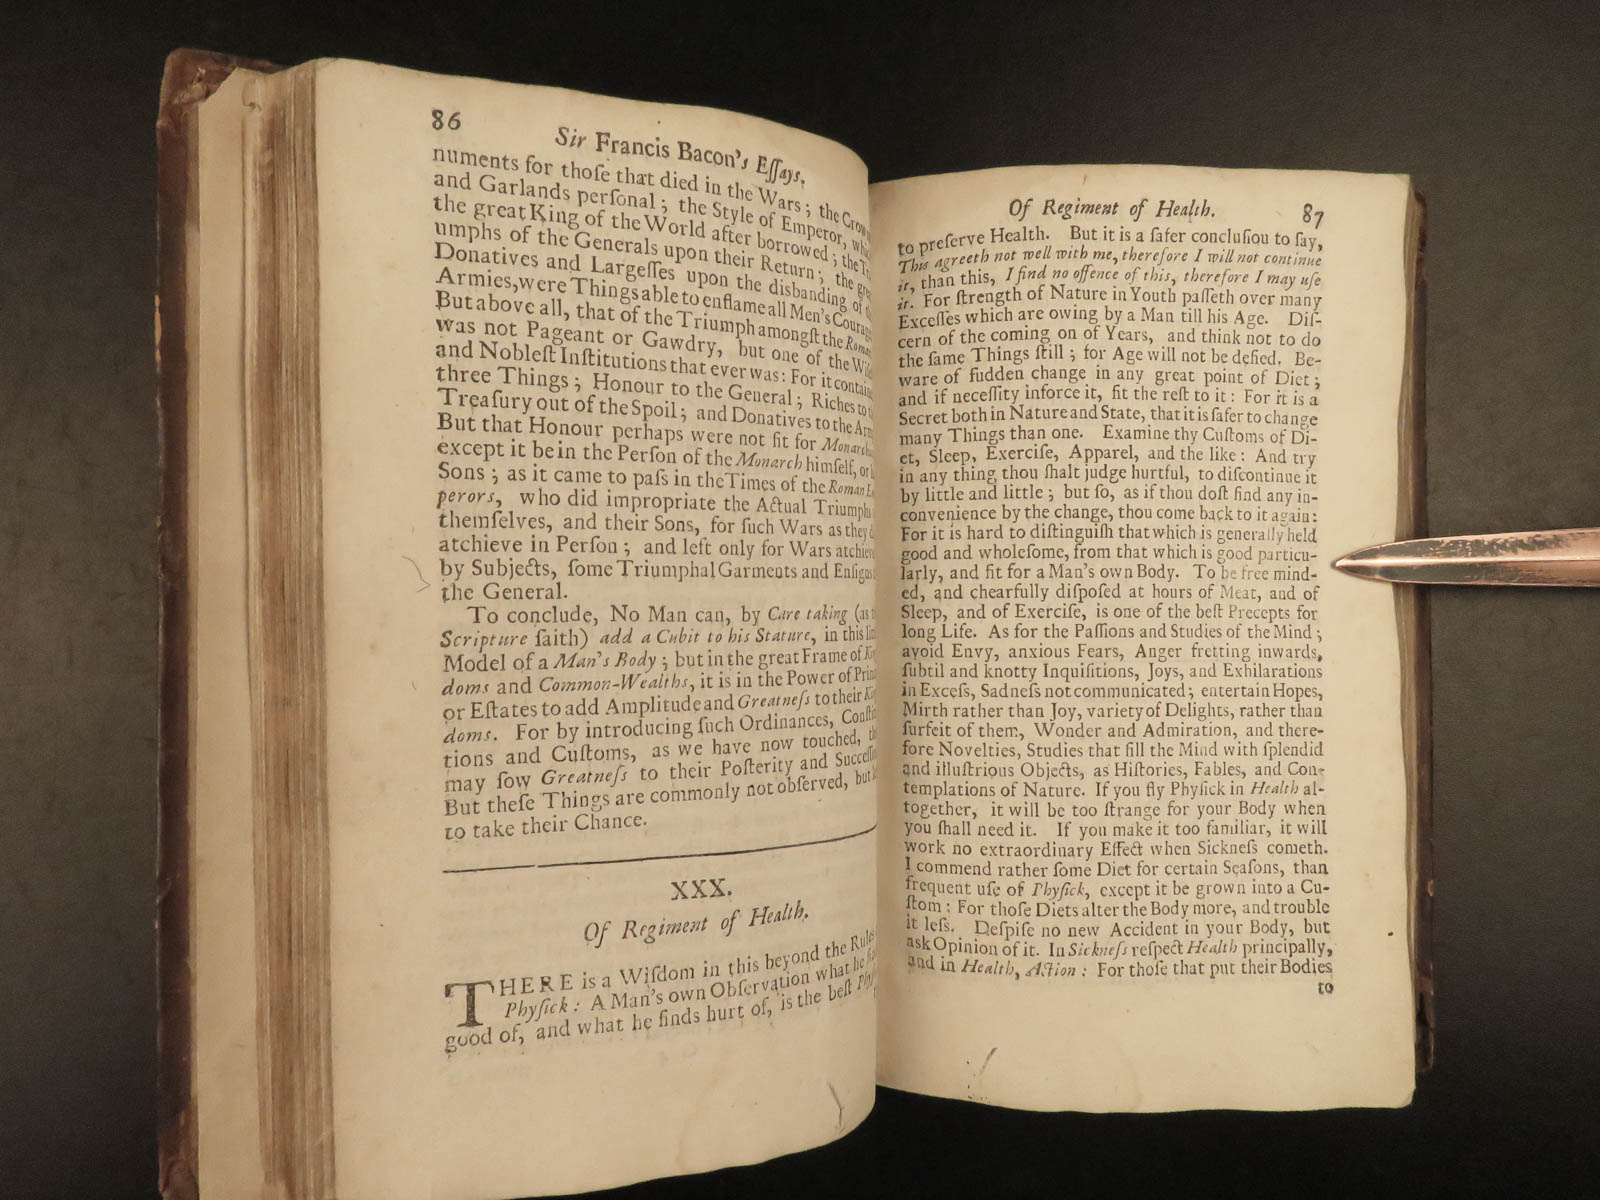 86
Sir Francis Bacon's Eſſays.
numents for thoſe that died in the Wars; the
and Garlands perſonal; the Style of Emperor,
the great King of the World after borrowed; the
umphs of the Generals upon their Return; the
Donatives and Largeſſes upon the disbanding of
Armies, were Things able to enflame all Men's
But above all, that of the Triumph amongſt the
was not Pageant or Gawdry, but one of the
and Nobleſt Inſtitutions that ever was: For it
three Things; Honour to the General; Riches to
Treaſury out of the Spoil; and Donatives to the
But that Honour perhaps were not fit for
except it be in the Perſon of the Monarch himſelf, or
Sons; as it came to paſs in the Times of the Roman
perors, who did impropriate the Actual Triumphs
themſelves, and their Sons, for ſuch Wars as they
atchieve in Perſon; and left only for Wars
by Subjects, ſome Triumphal Garments and Enſigns
the General.
To conclude, No Man can, by Care taking (as
Scripture ſaith) add a Cubit to his Stature, in this
Model of a Man's Body; but in the great Frame of
doms and Common-Wealths, it is in the Power of
or Eſtates to add Amplitude and Greatneſs to their
doms. For by introducing ſuch Ordinances,
tions and Cuſtoms, as we have now touched,
may ſow Greatneſs to their Poſterity and
But theſe Things are commonly not obſerved, but
to take their Chance.
XXX.
Of Regiment of Health.
THERE is a Wiſdom in this beyond the Rules
Phyſick: A Man's own Obſervation what he
good of, and what he finds hurt of, is the beſt
Of Regiment of Health. 87
to preſerve Health. But it is a ſafer concluſiou to ſay,
This agreeth not well with me, therefore I will not continue
it, than this, I find no offence of this, therefore I may uſe
it. For ſtrength of Nature in Youth paſſeth over many
Exceſſes which are owing by a Man till his Age. Diſ-
cern of the coming on of Years, and think not to do
the ſame Things ſtill; for Age will not be defied. Be-
ware of ſudden change in any great point of Diet;
and if neceſſity inforce it, fit the reſt to it: For it is a
Secret both in Nature and State, that it is ſafer to change
many Things than one. Examine thy Cuſtoms of Di-
et, Sleep, Exerciſe, Apparel, and the like: And try
in any thing thou ſhalt judge hurtful, to diſcontinue it
by little and little; but ſo, as if thou doſt find any in-
convenience by the change, thou come back to it again:
For it is hard to diſtinguiſh that which is generally held
good and wholeſome, from that which is good particu-
larly, and fit for a Man's own Body. To be free mind-
ed, and chearfully diſpoſed at hours of Meat, and of
Sleep, and of Exerciſe, is one of the beſt Precepts for
long Life. As for the Paſſions and Studies of the Mind;
avoid Envy, anxious Fears, Anger fretting inwards,
ſubtil and knotty Inquiſitions, Joys, and Exhilarations
in Exceſs, Sadneſs not communicated; entertain Hopes,
Mirth rather than Joy, variety of Delights, rather than
ſurfeit of them, Wonder and Admiration, and there-
fore Novelties, Studies that fill the Mind with ſplendid
and illuſtrious Objects, as Hiſtories, Fables, and Con-
templations of Nature. If you fly Phyſick in Health al-
together, it will be too ſtrange for your Body when
you ſhall need it. If you make it too familiar, it will
work no extraordinary Effect when Sickneſs cometh.
I commend rather ſome Diet for certain Seaſons, than
frequent uſe of Phyſick, except it be grown into a Cu-
ſtom: For thoſe Diets alter the Body more, and trouble
it leſs. Deſpiſe no new Accident in your Body, but
ask Opinion of it. In Sickneſs reſpect Health principally,
and in Health, Action: For thoſe that put their Bodies
to